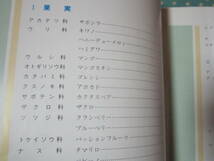 1 果 実
アカテツ科 サポジラ
ウ リ 科 キワノ
ハネーデューメロン
ペピーノ
ウルシ科 マンゴー
オトギリソウ科 マンゴスチン
カタバミ科 ゴレンシ
クスノキ科 アボカド
サボテン科 カクタスペアー
ザクロ科 ザクロ
ツツジ科 クランベリー
ブルーベリー
トケイソウ科 パッションフルーツ
ナ ス 科 タマリロ